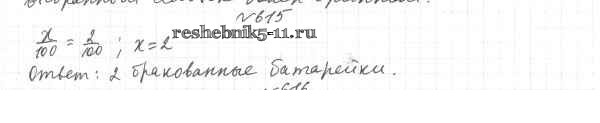 №615
x/100 = 2/100 ; x=2
reshebnik5-11.ru
Ответ: 2 бракованные батарейки.